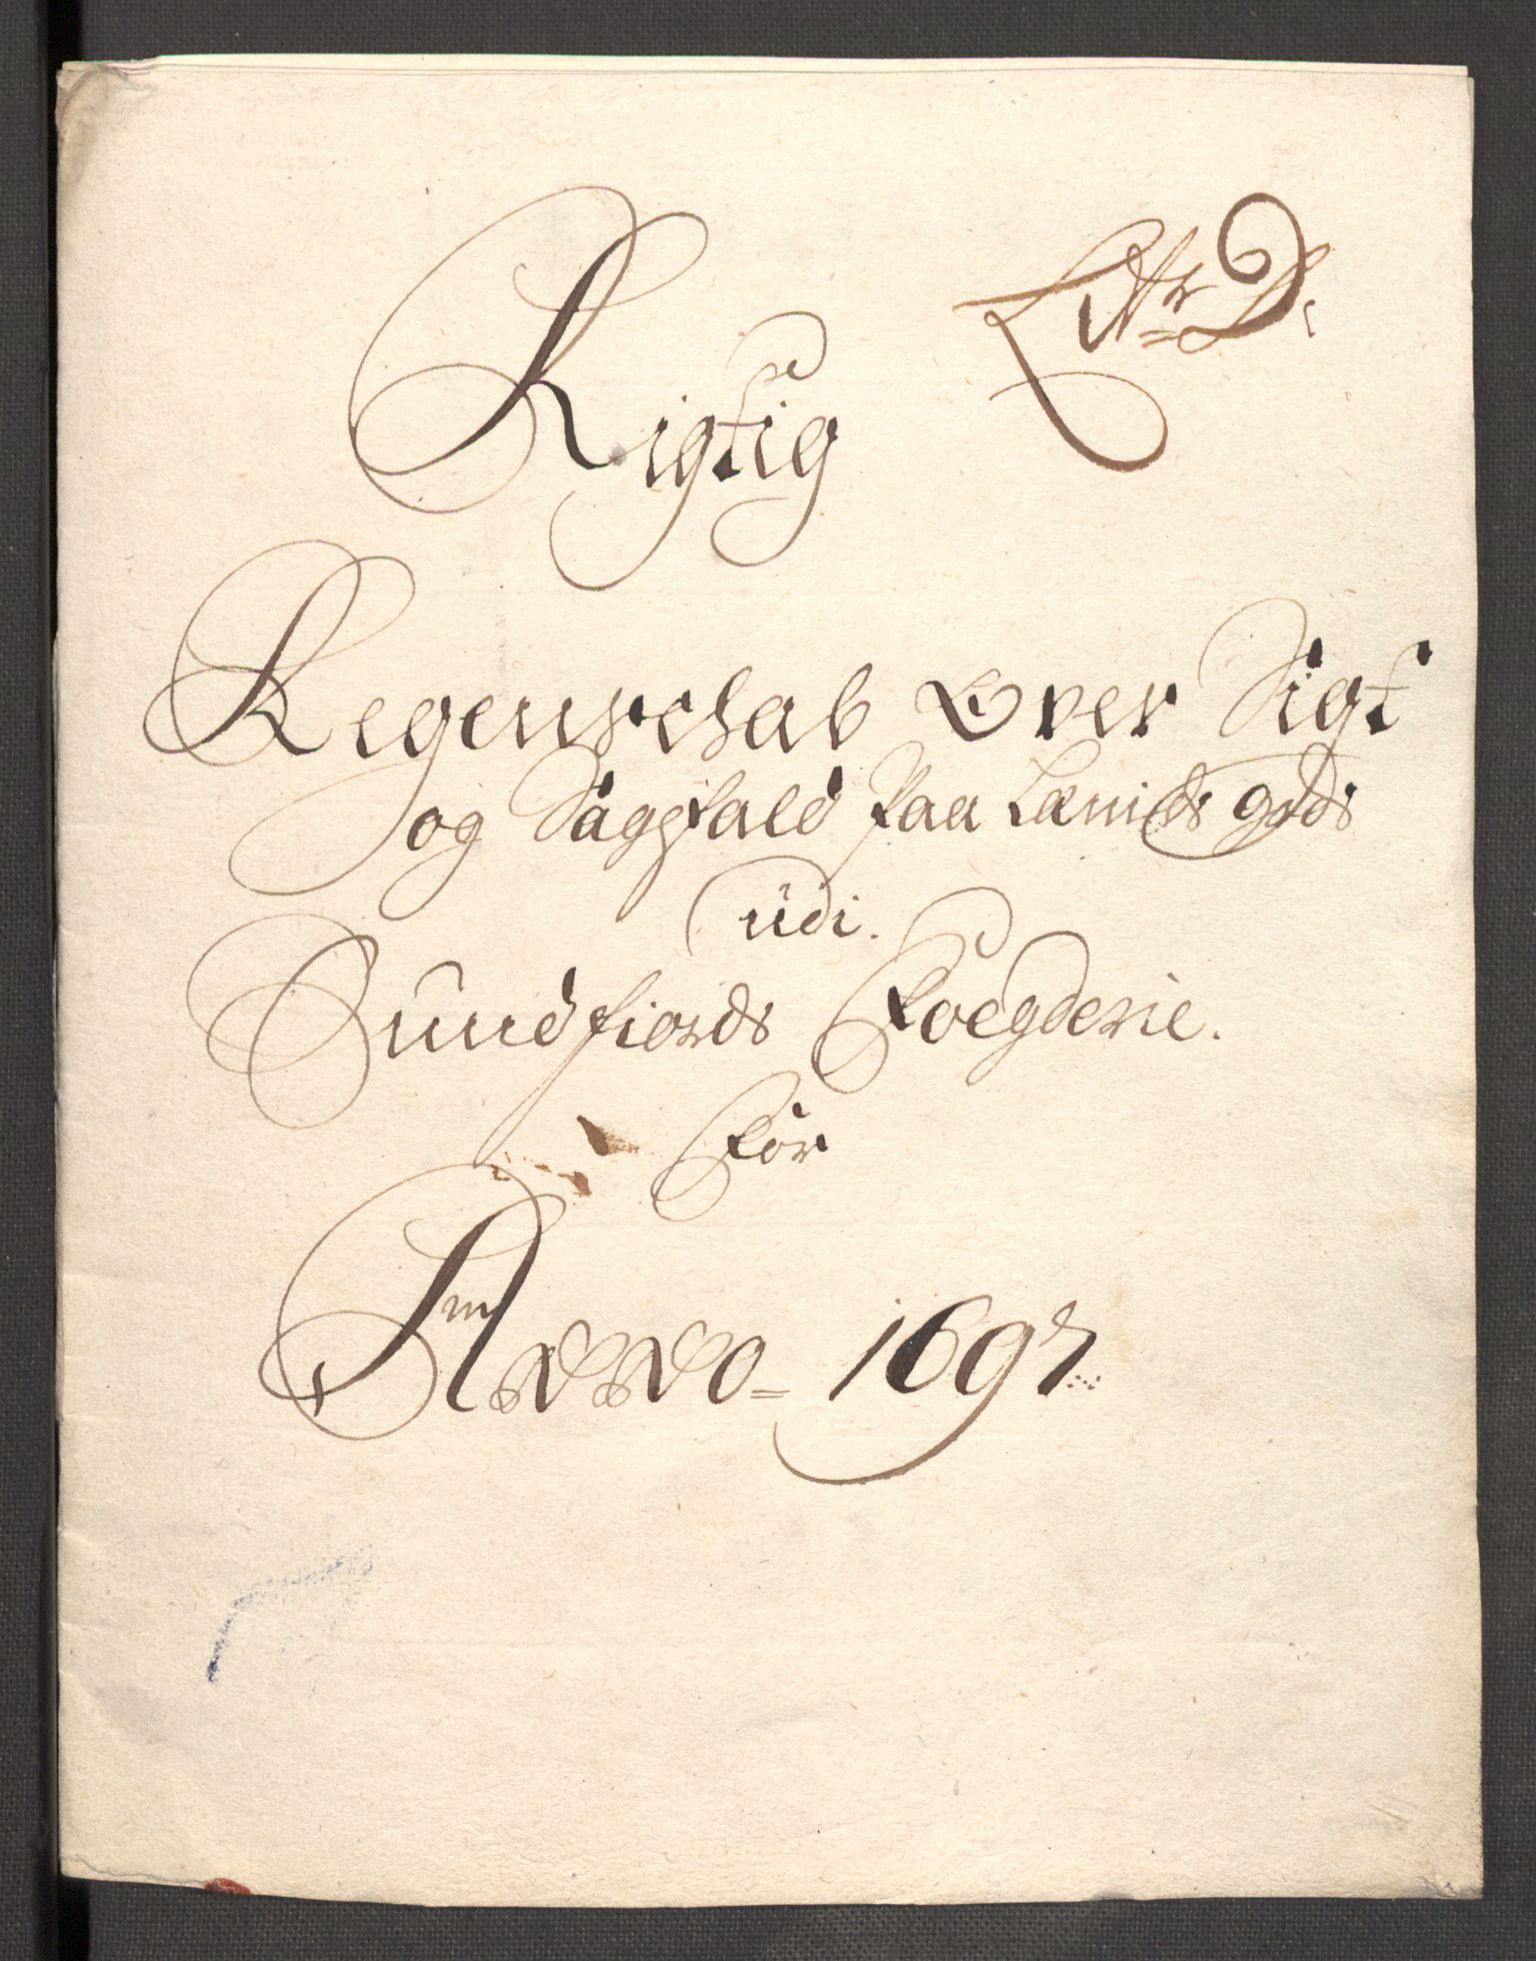 Littr D.
Rigtig
Regenschab Over Sigt
og Sagfald paa Lænids gods
udi.
Sundfiords Foegderie.
for
Anno 1697